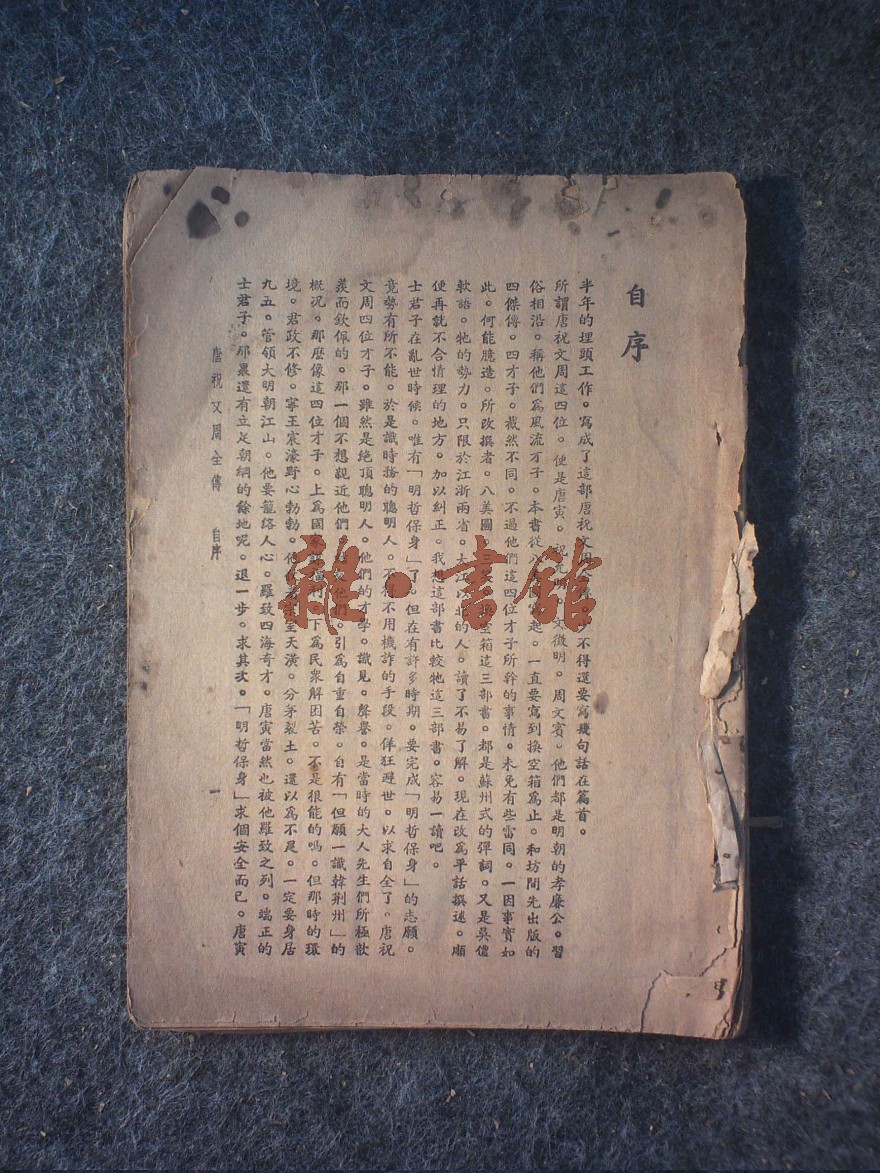 自序
半年的埋頭工作。寫成了這部唐祝文周全傳。少不得還要寫幾句話在篇首。
所謂唐祝文周這四位。便是唐寅。祝允明。文徵明。周文賓。他們都是明朝的孝廉公。習
俗相沿。稱他們爲風流才子。本書從八美圖寫起。一直要寫到換空箱爲止。和坊間先出版的
四傑傳。四才子。截然不同。不過他們這四位才子所幹的事情。未免有些雷同。一因事實如
此。何能臆造。所改撰者。八美圖 換空箱這三部書。都是蘇州式的彈詞。又是吳儂
軟語。牠的勢力。只限於江浙兩省。大江以北的人。讀了不易了解。現在改爲平話撰述。順
便再就不合情理的地方。加以糾正。我想這部書比較牠這三部書。容易一讀吧。
士君子在亂世時候。唯有「明哲保身」了。但在有許多時期。要完成「明哲保身」的志願。
竟勢有所不能。於是識時務的聰明人。不得不用機詐的手段。佯狂避世。以求自全了。唐祝
文周四位才子。雖然是絕頂聰明人。他們的才學。識見。聲譽。是當時的大人先生們所極歆
羨而欽佩的。那一個不想親近他們 他們。引爲自重自榮。自有「但願一識韓荆州」的
概况。那麼像這四位才子。上爲國家 下爲民衆解困苦。不是很能的嗎。但那時的環
境。君政不修。寧王宸濠野心勃勃。他 宗室天潢。分茅裂土。還以爲不足。一定要身居
九五。管領大明朝江山。他要籠絡人心。羅致四海奇才。唐寅當然也被他羅致之列。端正的
士君子。那裏還有立足朝綱的餘地呢。退一步。求其次。「明哲保身」求個安全而已。唐寅
唐祝文周全傳 自序
一
雜·書館